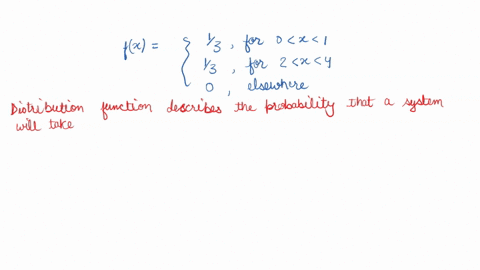 f(x) = { 1/3 , for 0 < x < 1
1/3 , for 2 < x < 4
0 , elsewhere
Distribution function describes the probability that a system
will take